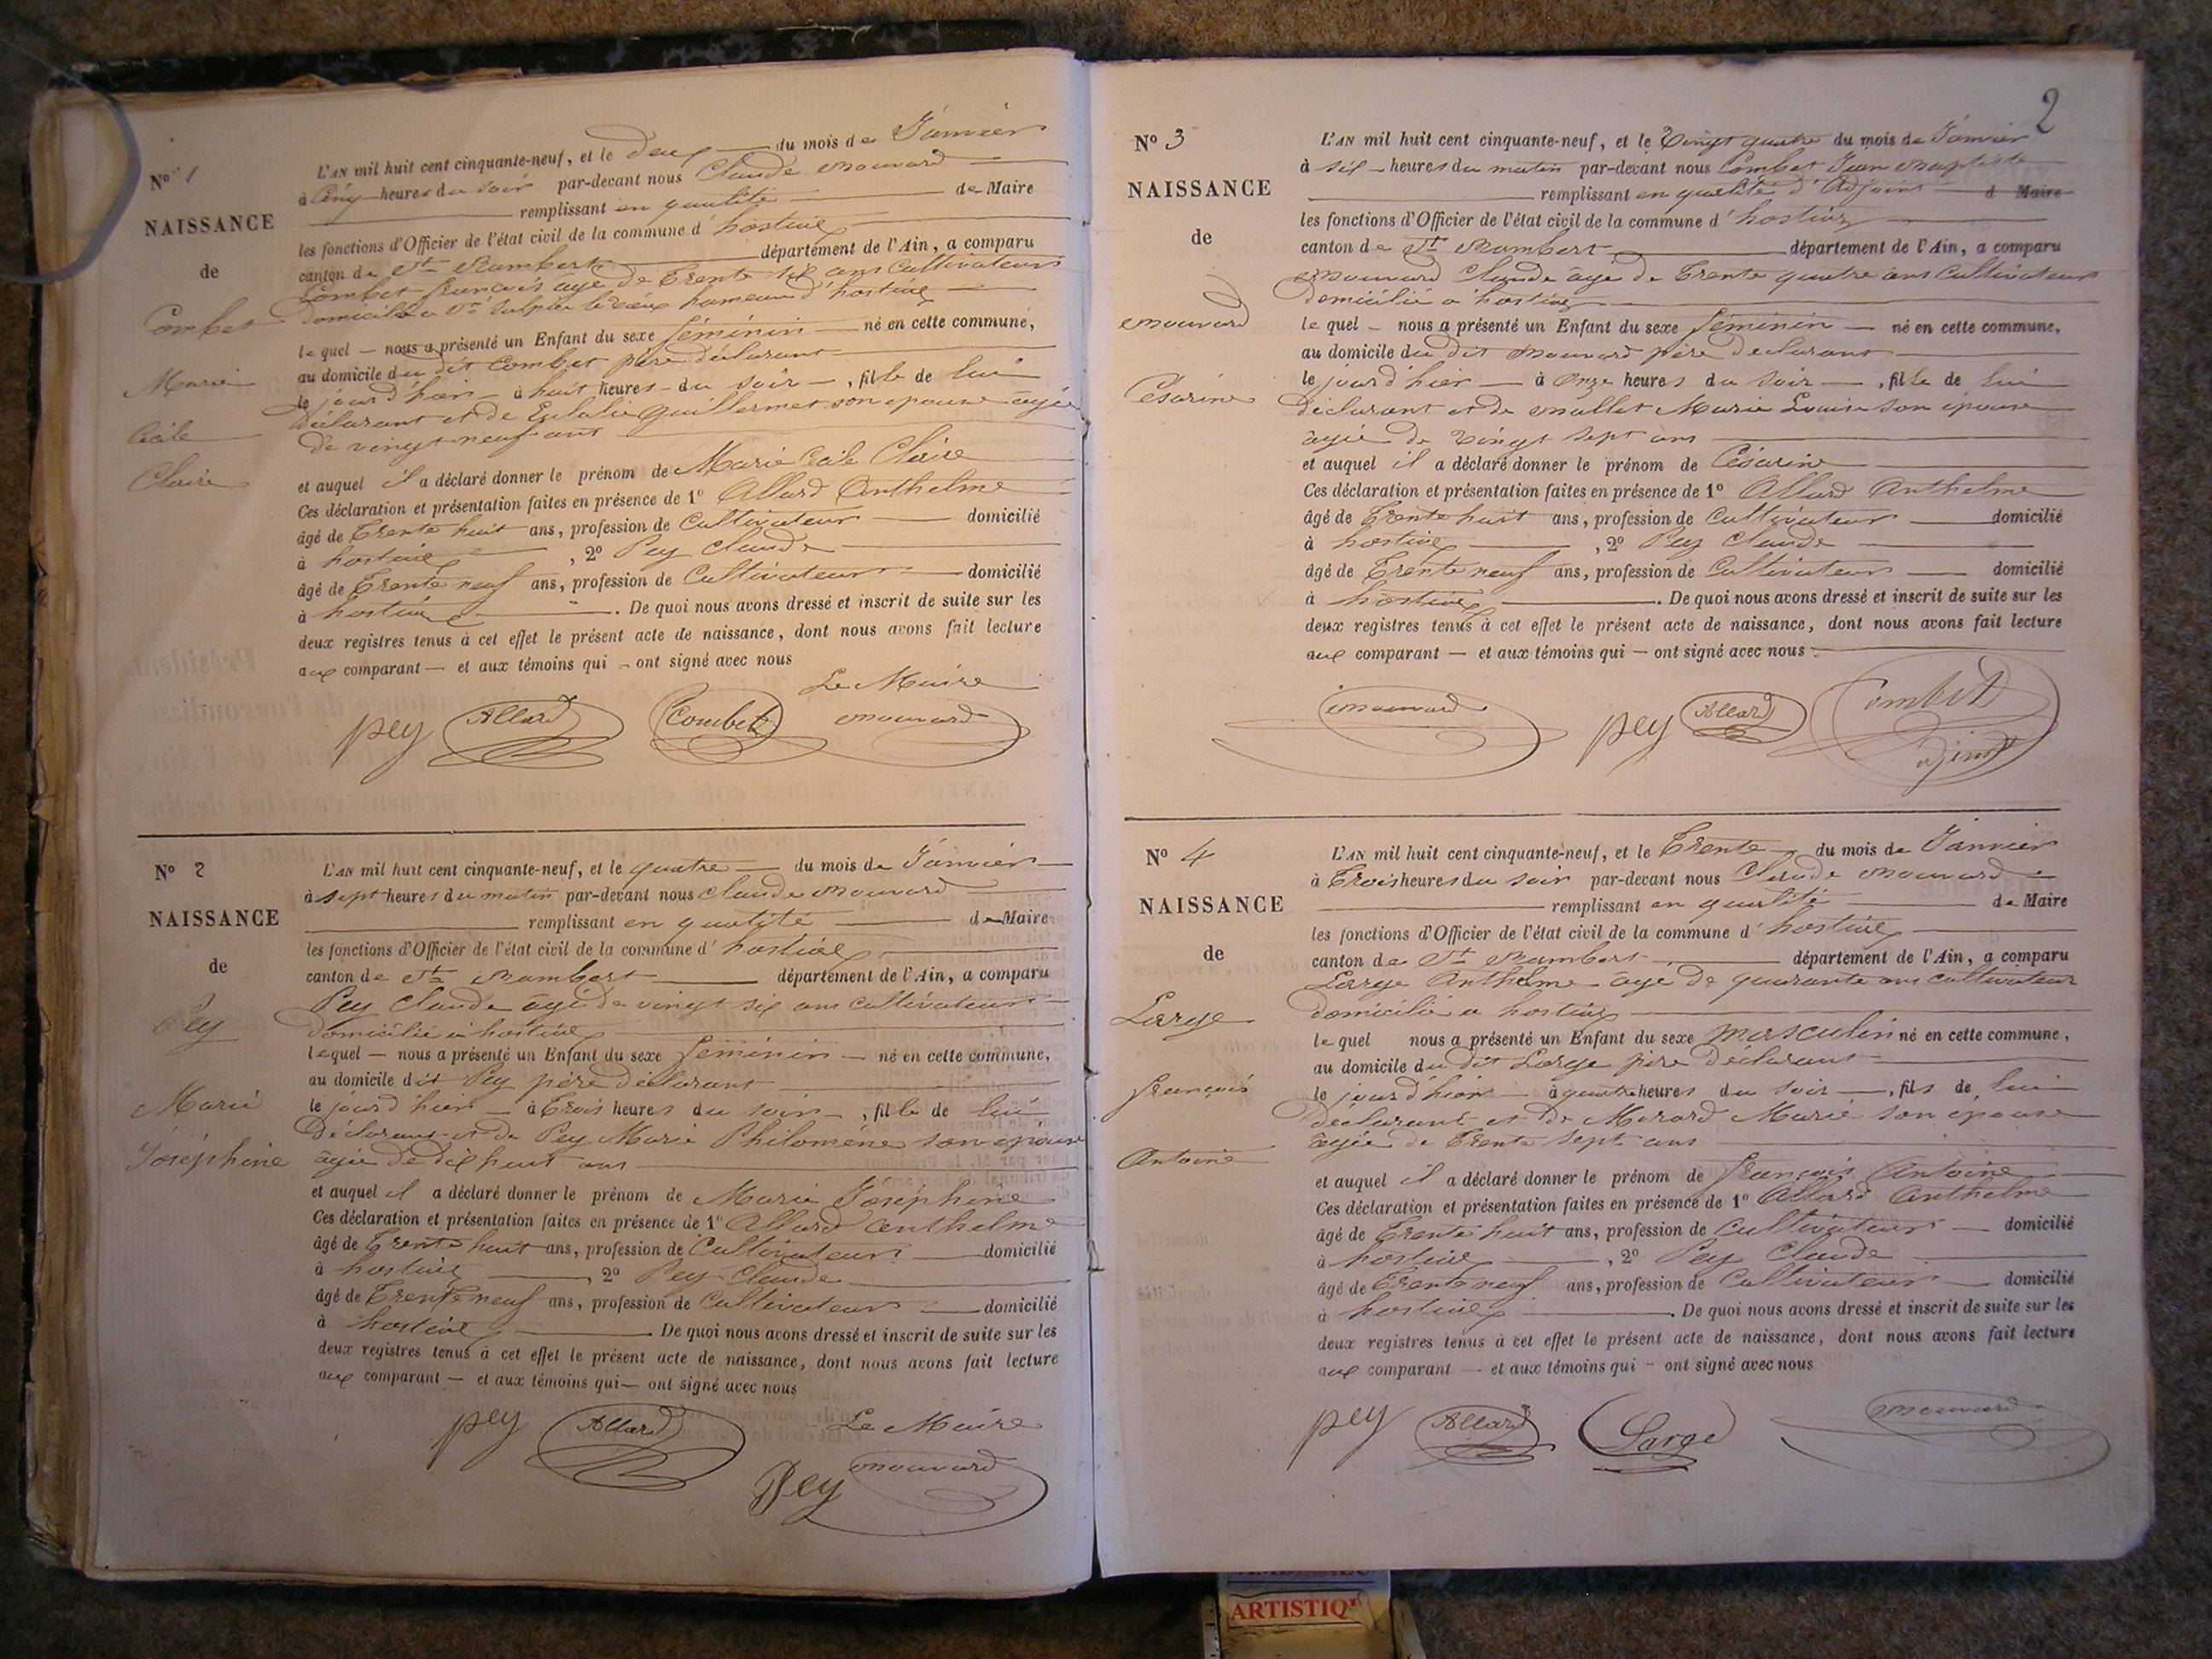 No 1
NAISSANCE
de
Combet
Marie
Cécile
Claire
L'AN mil huit cent cinquante-neuf, et le deux du mois de Janvier
à Cinq heures du soir par-devant nous Claude Mouvard
remplissant en qualité de Maire
les fonctions d'Officier de l'état civil de la commune d'hostiaz
canton de St Rambert département de l'Ain, a comparu
Combet françois âgé de Trente six ans Cultivateur
domicilié a St Sulpice le vieux hameau d'hostiaz
lequel nous a présenté un Enfant du sexe féminin né en cette commune,
au domicile du dit Combet père déclarant
le jour d'hier à huit heures du soir, fille de lui
déclarant et de Eulalie Guillermet son épouse agée
de vingt neuf ans
et auquel il a déclaré donner le prénom de Marie Cécile Claire
Ces déclaration et présentation faites en présence de 1o Allard Anthelme
âgé de Trente huit ans, profession de Cultivateur domicilié
à hostiaz, 2o Pey Claude
âgé de Trente neuf ans, profession de Cultivateur domicilié
à hostiaz. De quoi nous avons dressé et inscrit de suite sur les
deux registres tenus à cet effet le présent acte de naissance, dont nous avons fait lecture
aux comparant et aux témoins qui ont signé avec nous
Le Maire
pey Allard Combet Mouvard
No 2
NAISSANCE
de
Pey
Marie
Joséphine
L'AN mil huit cent cinquante-neuf, et le quatre du mois de Janvier
à sept heures du matin par-devant nous Claude Mouvard
remplissant en qualité de Maire
les fonctions d'Officier de l'état civil de la commune d'hostiaz
canton de St Rambert département de l'Ain, a comparu
Pey Claude âgé de vingt six ans cultivateur
domicilié à hostiaz
lequel nous a présenté un Enfant du sexe féminin né en cette commune,
au domicile dit Pey père déclarant
le jour d'hier à Trois heures du soir, fille de lui
déclarant et de Pey Marie Philomène son épouse
âgée de dix huit ans
et auquel il a déclaré donner le prénom de Marie Joséphine
Ces déclaration et présentation faites en présence de 1o Allard Anthelme
âgé de Trente huit ans, profession de Cultivateur domicilié
à hostiaz, 2o Pey Claude
âgé de Trente neuf ans, profession de Cultivateur domicilié
à hostiaz. De quoi nous avons dressé et inscrit de suite sur les
deux registres tenus à cet effet le présent acte de naissance, dont nous avons fait lecture
aux comparant et aux témoins qui ont signé avec nous
pey Allard Le Maire
Pey Mouvard
2
No 3
NAISSANCE
de
Mouvard
Césarine
L'AN mil huit cent cinquante-neuf, et le Vingt quatre du mois de Janvier
à six heures du matin par-devant nous Combet Jean Baptiste
remplissant en qualité d'Adjoint d Maire
les fonctions d'Officier de l'état civil de la commune d'hostiaz
canton de St Rambert département de l'Ain, a comparu
Mouvard Claude âgé de Trente quatre ans Cultivateur
domicilié a hostiaz
lequel nous a présenté un Enfant du sexe féminin né en cette commune,
au domicile du dit Mouvard père déclarant
le jour d'hier à Onze heures du soir, fille de lui
déclarant et de Mallet Marie Louise son épouse
âgée de Vingt sept ans
et auquel il a déclaré donner le prénom de Césarine
Ces déclaration et présentation faites en présence de 1o Allard Anthelme
âgé de Trente huit ans, profession de Cultivateur domicilié
à hostiaz, 2o Pey Claude
âgé de Trente neuf ans, profession de Cultivateur domicilié
à hostiaz. De quoi nous avons dressé et inscrit de suite sur les
deux registres tenus à cet effet le présent acte de naissance, dont nous avons fait lecture
aux comparant et aux témoins qui ont signé avec nous
Mouvard pey Allard Combet
adjoint
No 4
NAISSANCE
de
Large
françois
Antoine
L'AN mil huit cent cinquante-neuf, et le Trente du mois de Janvier
à Trois heures du soir par-devant nous Claude Mouvard
remplissant en qualité de Maire
les fonctions d'Officier de l'état civil de la commune d'hostiaz
canton de St Rambert département de l'Ain, a comparu
Large Anthelme âgé de quarante ans cultivateur
domicilié a hostiaz
lequel nous a présenté un Enfant du sexe masculin né en cette commune,
au domicile du dit Large père déclarant
le jour d'hier à quatre heures du soir, fils de lui
déclarant et de Morard Marie son épouse
âgée de Trente sept ans
et auquel il a déclaré donner le prénom de françois Antoine
Ces déclaration et présentation faites en présence de 1o Allard Anthelme
âgé de Trente huit ans, profession de Cultivateur domicilié
à hostiaz, 2o Pey Claude
âgé de Trente neuf ans, profession de Cultivateur domicilié
à hostiaz. De quoi nous avons dressé et inscrit de suite sur les
deux registres tenus à cet effet le présent acte de naissance, dont nous avons fait lecture
aux comparant et aux témoins qui ont signé avec nous
pey Allard Large Mouvard
ARTISTIQ